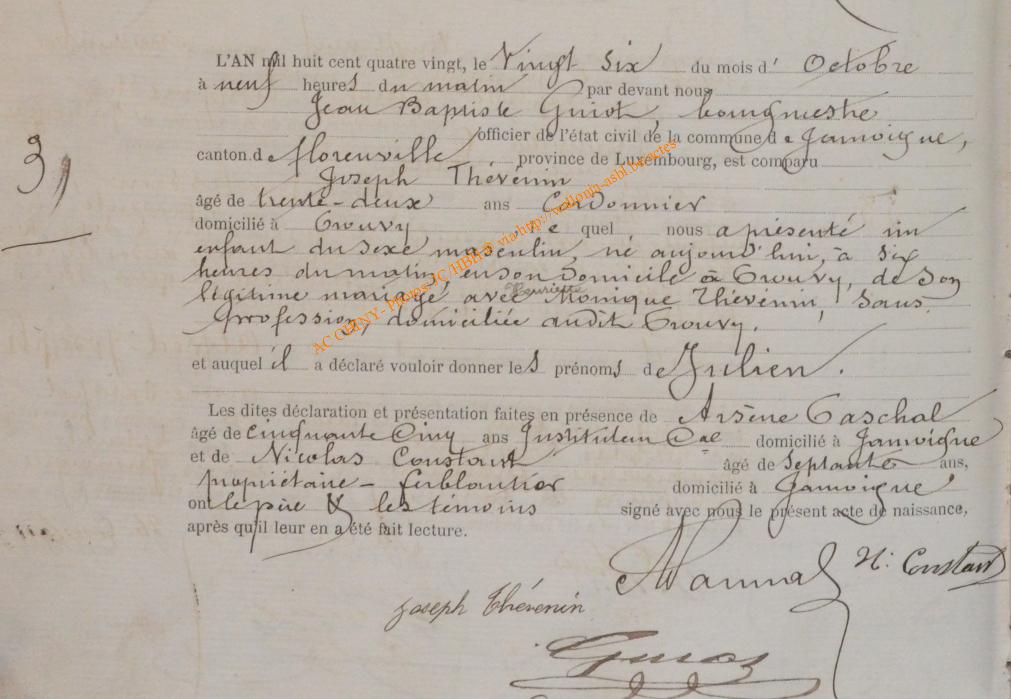 L'AN mil huit cent quatre vingt, le Vingt Six du mois d' Octobre
à neuf heures du matin par devant nous
Jean Baptiste Guiot, bourgmestre
officier de l'état civil de la commune de Jamoigne,
canton de Florenville, province de Luxembourg, est comparu
31
Joseph Thévenin
âgé de trente-deux ans Cordonnier
domicilié à Prouvy, le quel, nous a présenté un
enfant du sexe masculin, né aujourd'hui, à six
heures du matin en son domicile à Prouvy, de son
légitime mariage, avec Henriette Monique Thévenin, sans
profession, domiciliée audit Prouvy.
et auquel il a déclaré vouloir donner les prénoms de Julien.
Les dites déclaration et présentation faites en présence de Arsène Paschal
âgé de cinquante Cinq ans Instituteur Cal domicilié à Jamoigne
et de Nicolas Constant âgé de septante ans,
propriétaire - ferblantier domicilié à Jamoigne
ont le père & les témoins signé avec nous le présent acte de naissance,
après qu'il leur en a été fait lecture.
N. Constant
Joseph Thévenin
Guiot
ACTOMNY - Photos JC/HBH © via http://wallonia-asbl.be/actes